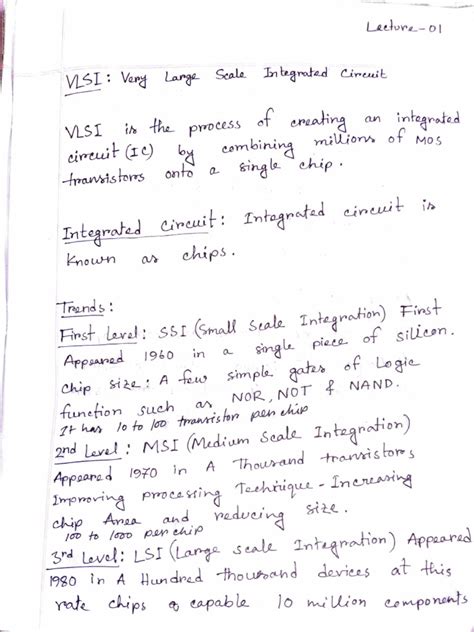 Lecture-01
VLSI: Very Large Scale Integrated Circuit
VLSI is the process of creating an integrated
circuit (IC) by combining millions of MOS
transistors onto a single chip.
Integrated circuit: Integrated circuit is
Known as chips.
Trends:
First Level: SSI (Small Scale Integration) First
Appeared 1960 in a single piece of silicon.
chip size: A few simple gates of Logic
function such as NOR, NOT & NAND.
It has 10 to 100 transistor per chip
2nd Level: MSI (Medium Scale Integration)
Appeared 1970 in A Thousand transistors
Improving processing Technique - Increasing
chip Area and reducing size.
100 to 1000 per chip
3rd Level: LSI (Large scale Integration) Appeared
1980 in A Hundred thousand devices at this
rate chips capable 10 million components